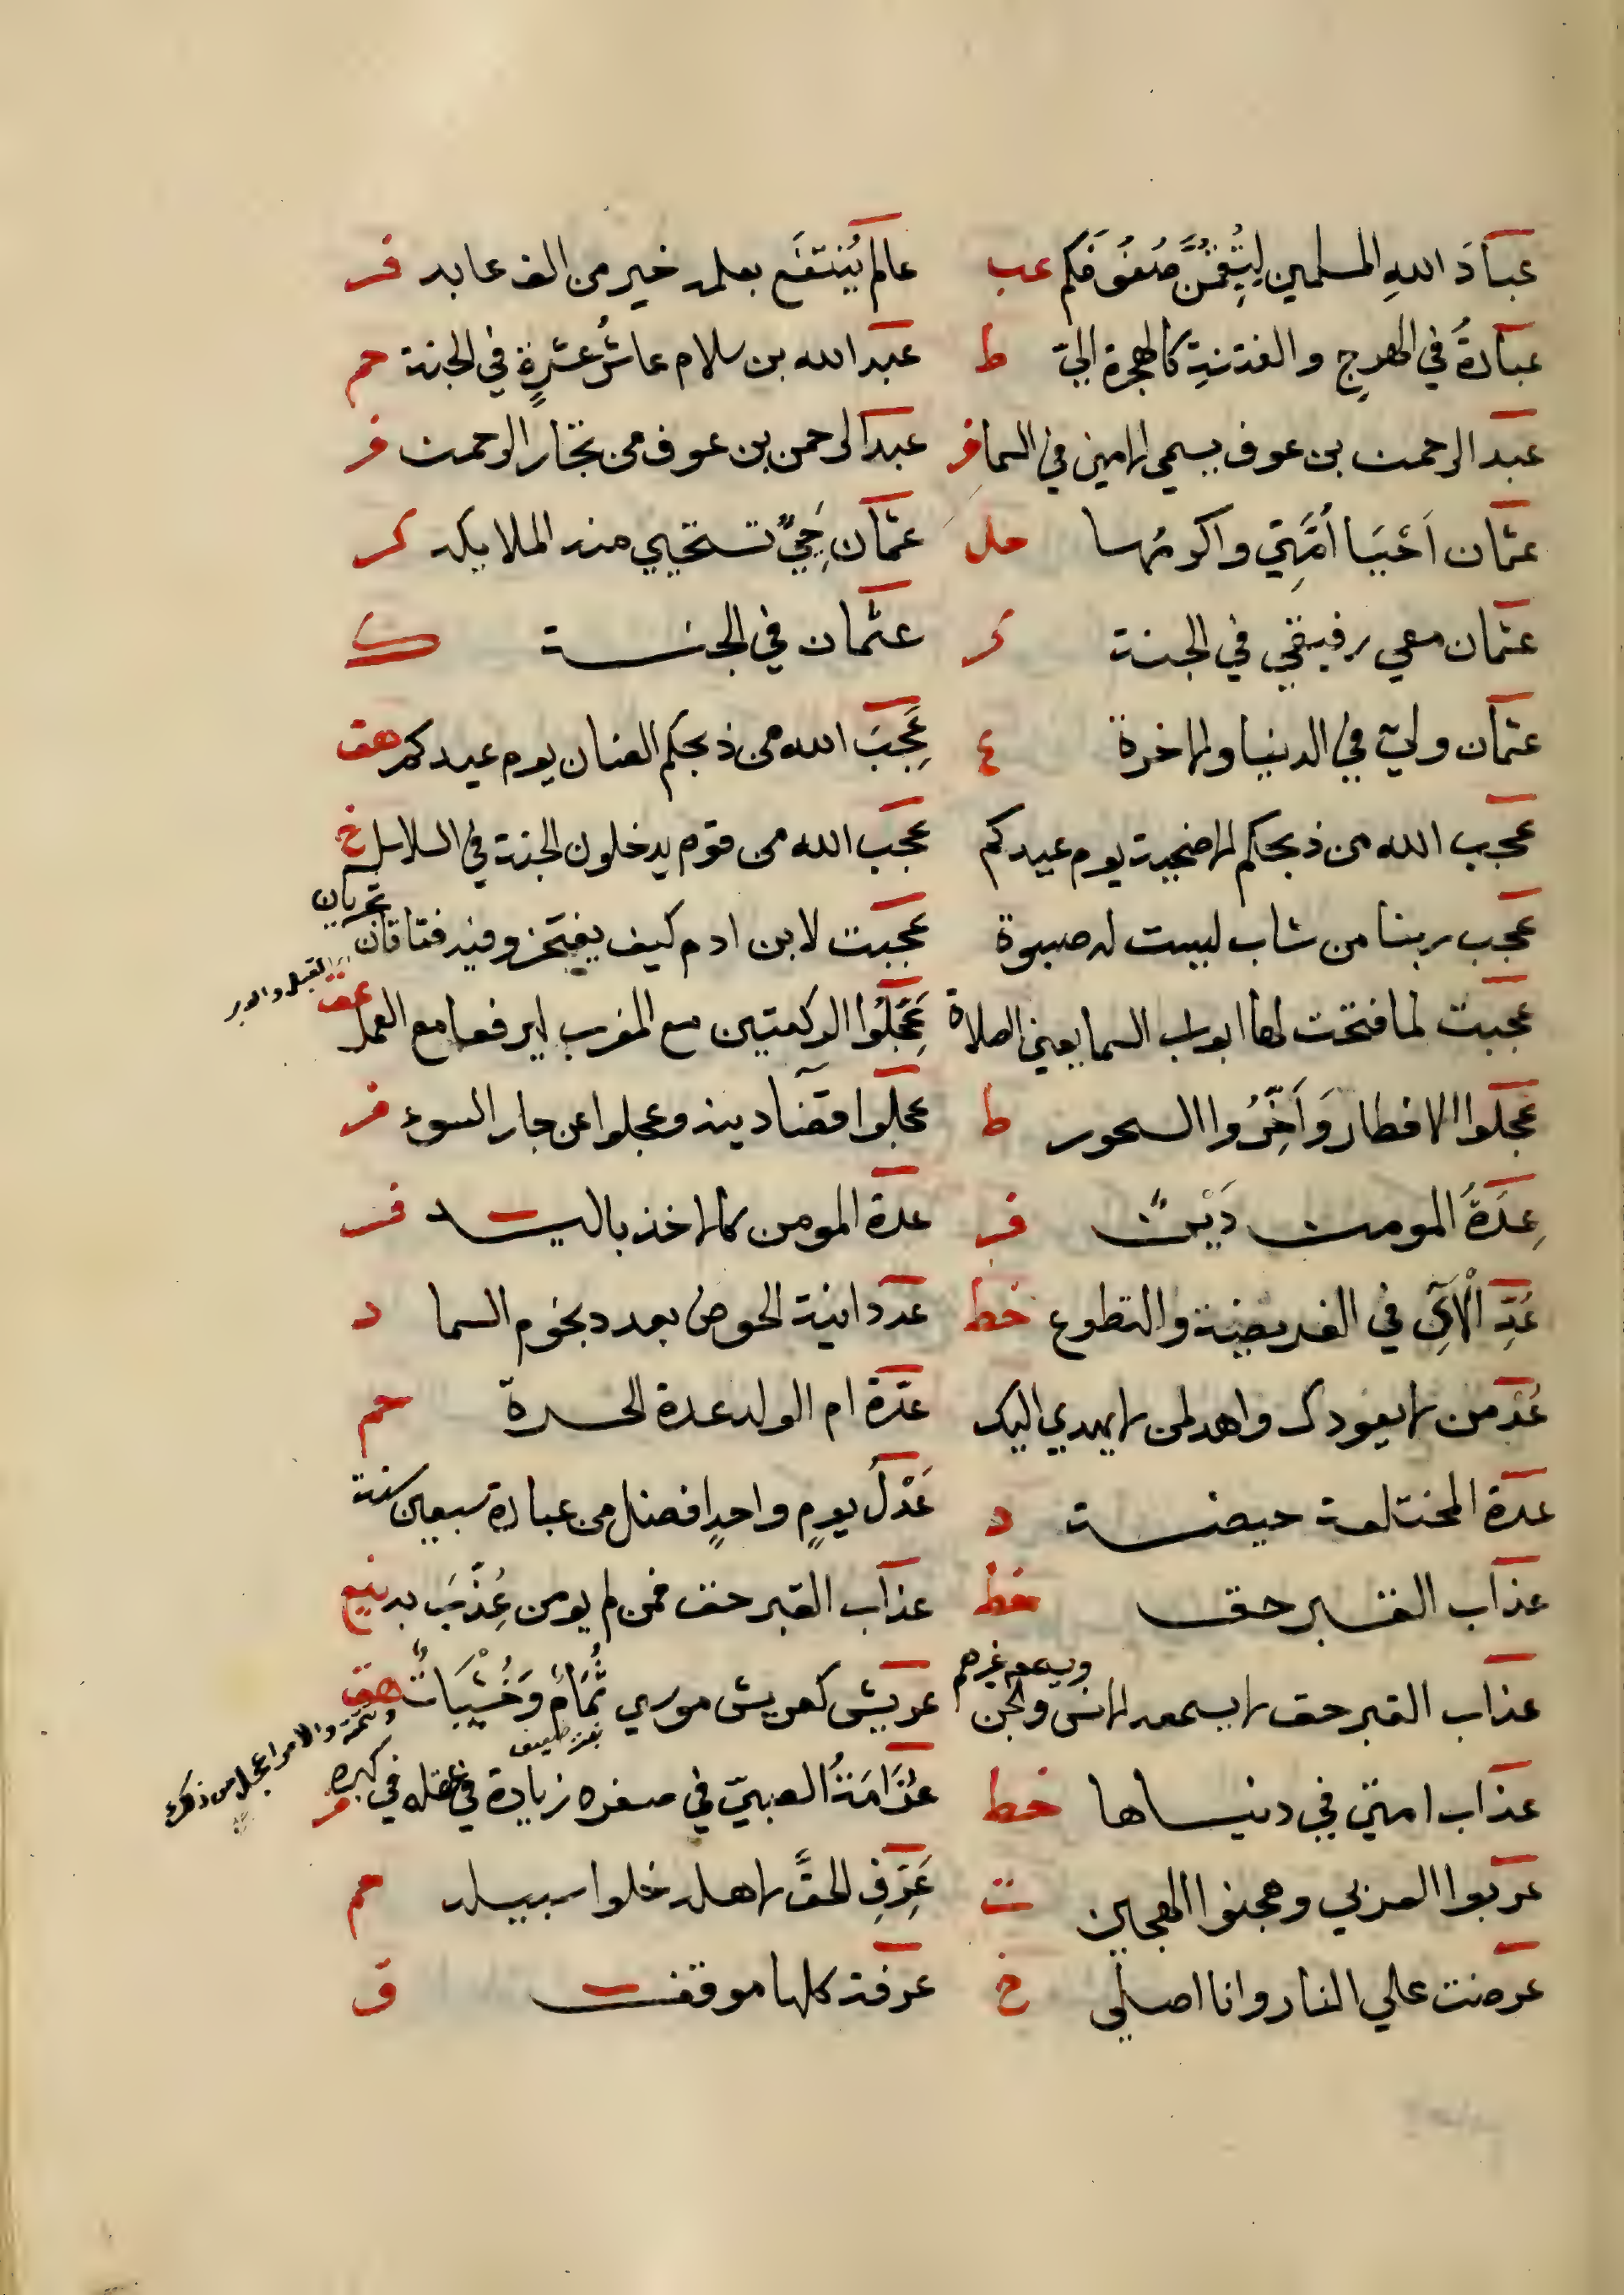 عبادَ اللهِ المسلمين ليُتِمُّنَّ صُفُوفَكم عب
عالم يُنتَفَع بعلمه خير من الف عابد فر
عبادةٌ في الهرجِ والفتنةِ كالهجرة اليّ ط
عبد الله بن سلام عاشُر عشرةٍ في الجنة حم
عبد الرحمن بن عوف يسمي الامين في السما فر
عبد الرحمن بن عوف من تجار الرحمن فر
عثمان اَحْيَا اُمَّتِي واكرمها حل
عثمان حَيِيٌّ تستحيي منه الملايكه كر
عثمان معي رفيقي في الجنة كر
عثمان في الجنة ك
عثمان وليي في الدنيا والاخرة ع
عَجِبَ الله من ذبحكم الضان يوم عيدكم هق
عجب الله من ذبحكم الاضحية يوم عيدكم
عجب الله من قوم يدخلون الجنة في السلاسل خ
عجب ربنا من شاب ليست له صبوة
عجبت لابن ادم كيف يفتخر وفيه فتاقان تجريان
القبل والدبر
عجبت لما فتحت لها ابواب السما يعني الصلاة
عَجِّلُوا الركعتين مع المغرب ليرفعا مع العمل عق
عجلوا الافطار وَاَخِّرُوا السحور ط
عجلوا قضآ دينه وعجلوا عن جار السوء فر
عِدَةُ المومن دَيْنٌ فر
عدة المومن كالاخذ باليد فر
عُدِّ الْآيَ في الفريضة والتطوع خط
عدد انية الحوض بعدد نجوم السما د
عُدْ من لا يعودك واهد لمن لا يهدي اليك
عدة ام الولد عدة الحرة حم
عدة المختلعة حيضة د
عَدْلُ يومٍ واحدٍ افضل من عبادة سبعين سنة
عذاب القبر حق خط
عذاب القبر حق فمن لم يومن عُذِّبَ به نيع
عذاب القبر حق لا يسمعه الانس والجن ويسمعه غيرهم
عريش كعريش موسي ثُمَامٌ وَخُشْيَبَاتٌ هق
والامر اعجل من ذلك
عذاب امتي في دنياها خط
عُرَامَةُ الصبيّ في صغره زيادة في عقله في كبره فر
عربوا العربي وهجنوا الهجين ت
عَرِفَ الحقَّ لاهله خلوا سبيله حم
عرضت علي النار وانا اصلي خ
عرفة كلها موقف ق